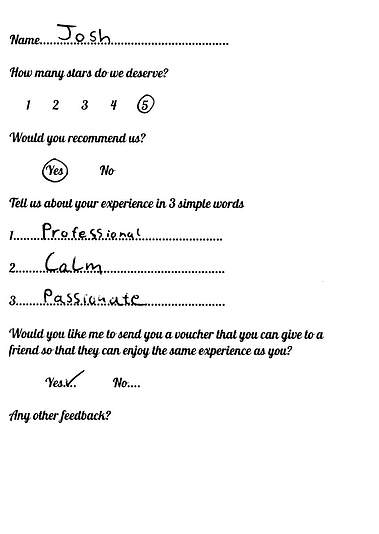 Name......Josh......
How many stars do we deserve?
1 2 3 4 5
Would you recommend us?
Yes No
Tell us about your experience in 3 simple words
1......Professional......
2......Calm......
3......Passionate......
Would you like me to send you a voucher that you can give to a
friend so that they can enjoy the same experience as you?
Yes.✓.. No....
Any other feedback?